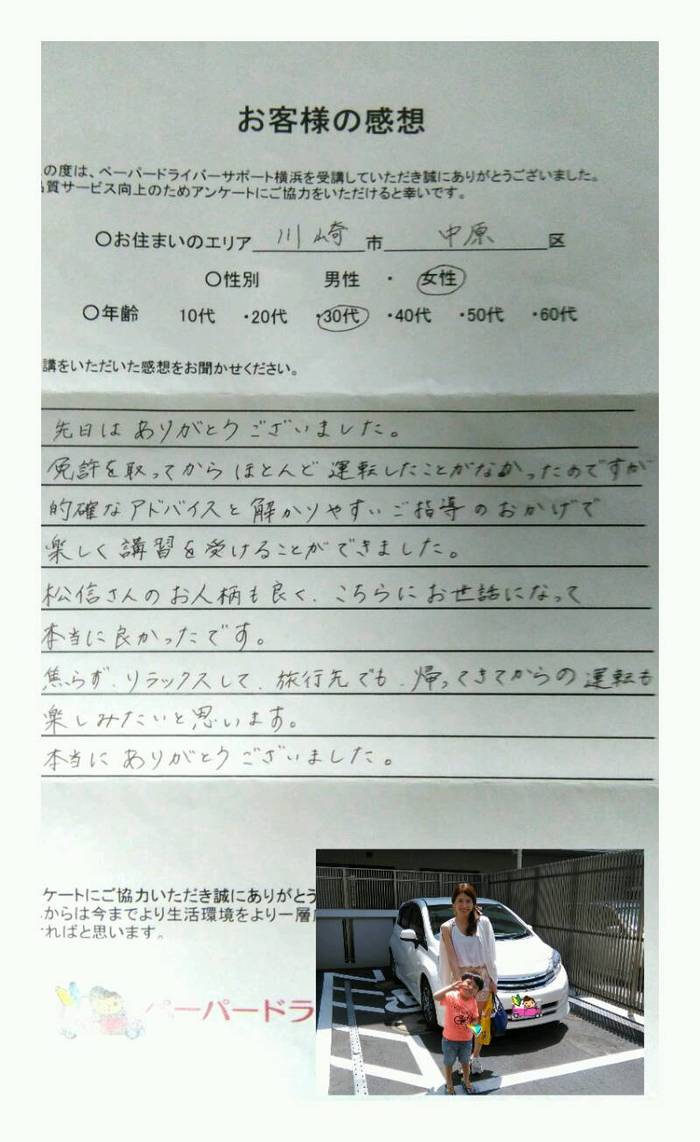 お客様の感想
の度は、ペーパードライバーサポート横浜を受講していただき誠にありがとうございました。
質サービス向上のためアンケートにご協力をいただけると幸いです。
〇お住まいのエリア 川崎 市 中原 区
〇性別 男性 ・ 女性
〇年齢 10代 ・20代 ・30代 ・40代 ・50代 ・60代
講をいただいた感想をお聞かせください。
先日はありがとうございました。
免許を取ってからほとんど運転したことがなかったのですが
的確なアドバイスと解かりやすいご指導のおかげで
楽しく講習を受けることができました。
松信さんのお人柄も良く、こちらにお世話になって
本当に良かったです。
焦らず、リラックスして、旅行先でも、帰ってきてからの運転も
楽しみたいと思います。
本当にありがとうございました。
ケートにご協力いただき誠にありがとう
からは今までより生活環境をより一層
ければと思います。
ペーパードラ